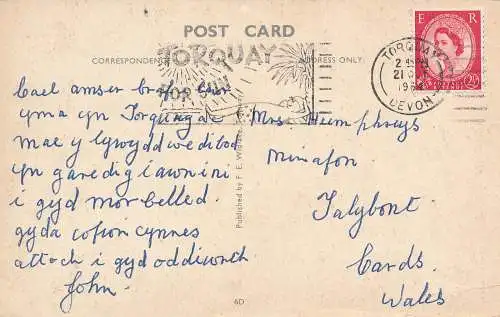 POST CARD
CORRESPONDENCE
ADDRESS ONLY
TORQUAY
FOR SUN
E R
2½D
TORQUAY
2 15 PM
21
19
DEVON
Cael amser braf
yma yn Torquay
Mae y tywydd wedi bod
yn garedig iawn i ni
i gyd mor belled.
gyda cofion cynnes
attoch i gyd oddiwrth
John.
Published by F. E.
Mrs Humphreys
Minafon
Talybont
Cards.
Wales
6D